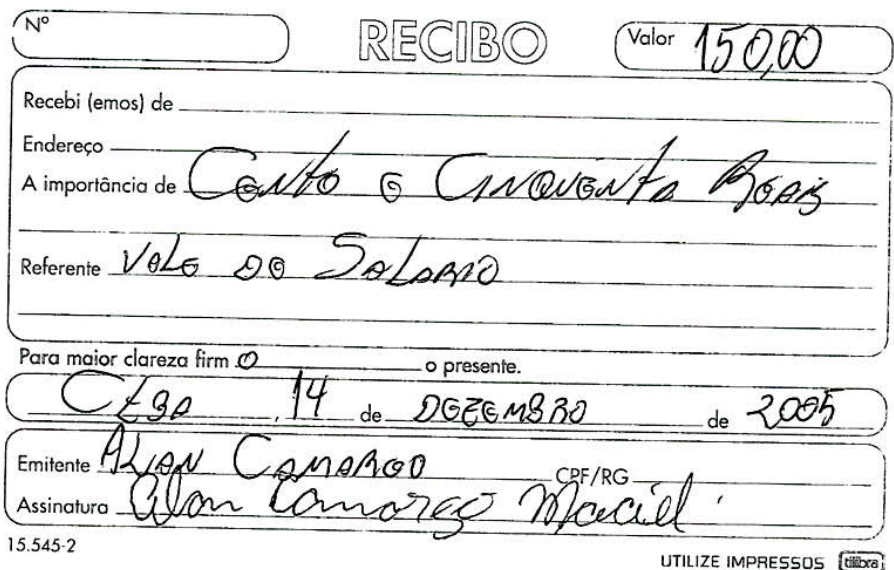 Nº
RECIBO
Valor 150,00
Recebi (emos) de
Endereço
A importância de Cento e Cinquenta Reais
Referente Vale do Salario
Para maior clareza firm o o presente.
Ctba, 14 de DEZEMBRO de 2005
Emitente Alan CAMARGO CPF/RG
Assinatura Alan Camargo Maciel
15.545-2
UTILIZE IMPRESSOS tilibra